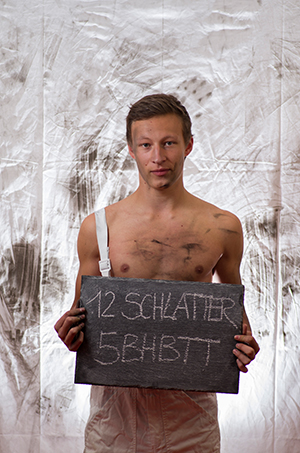 12 SCHLATTER
5BHBTT